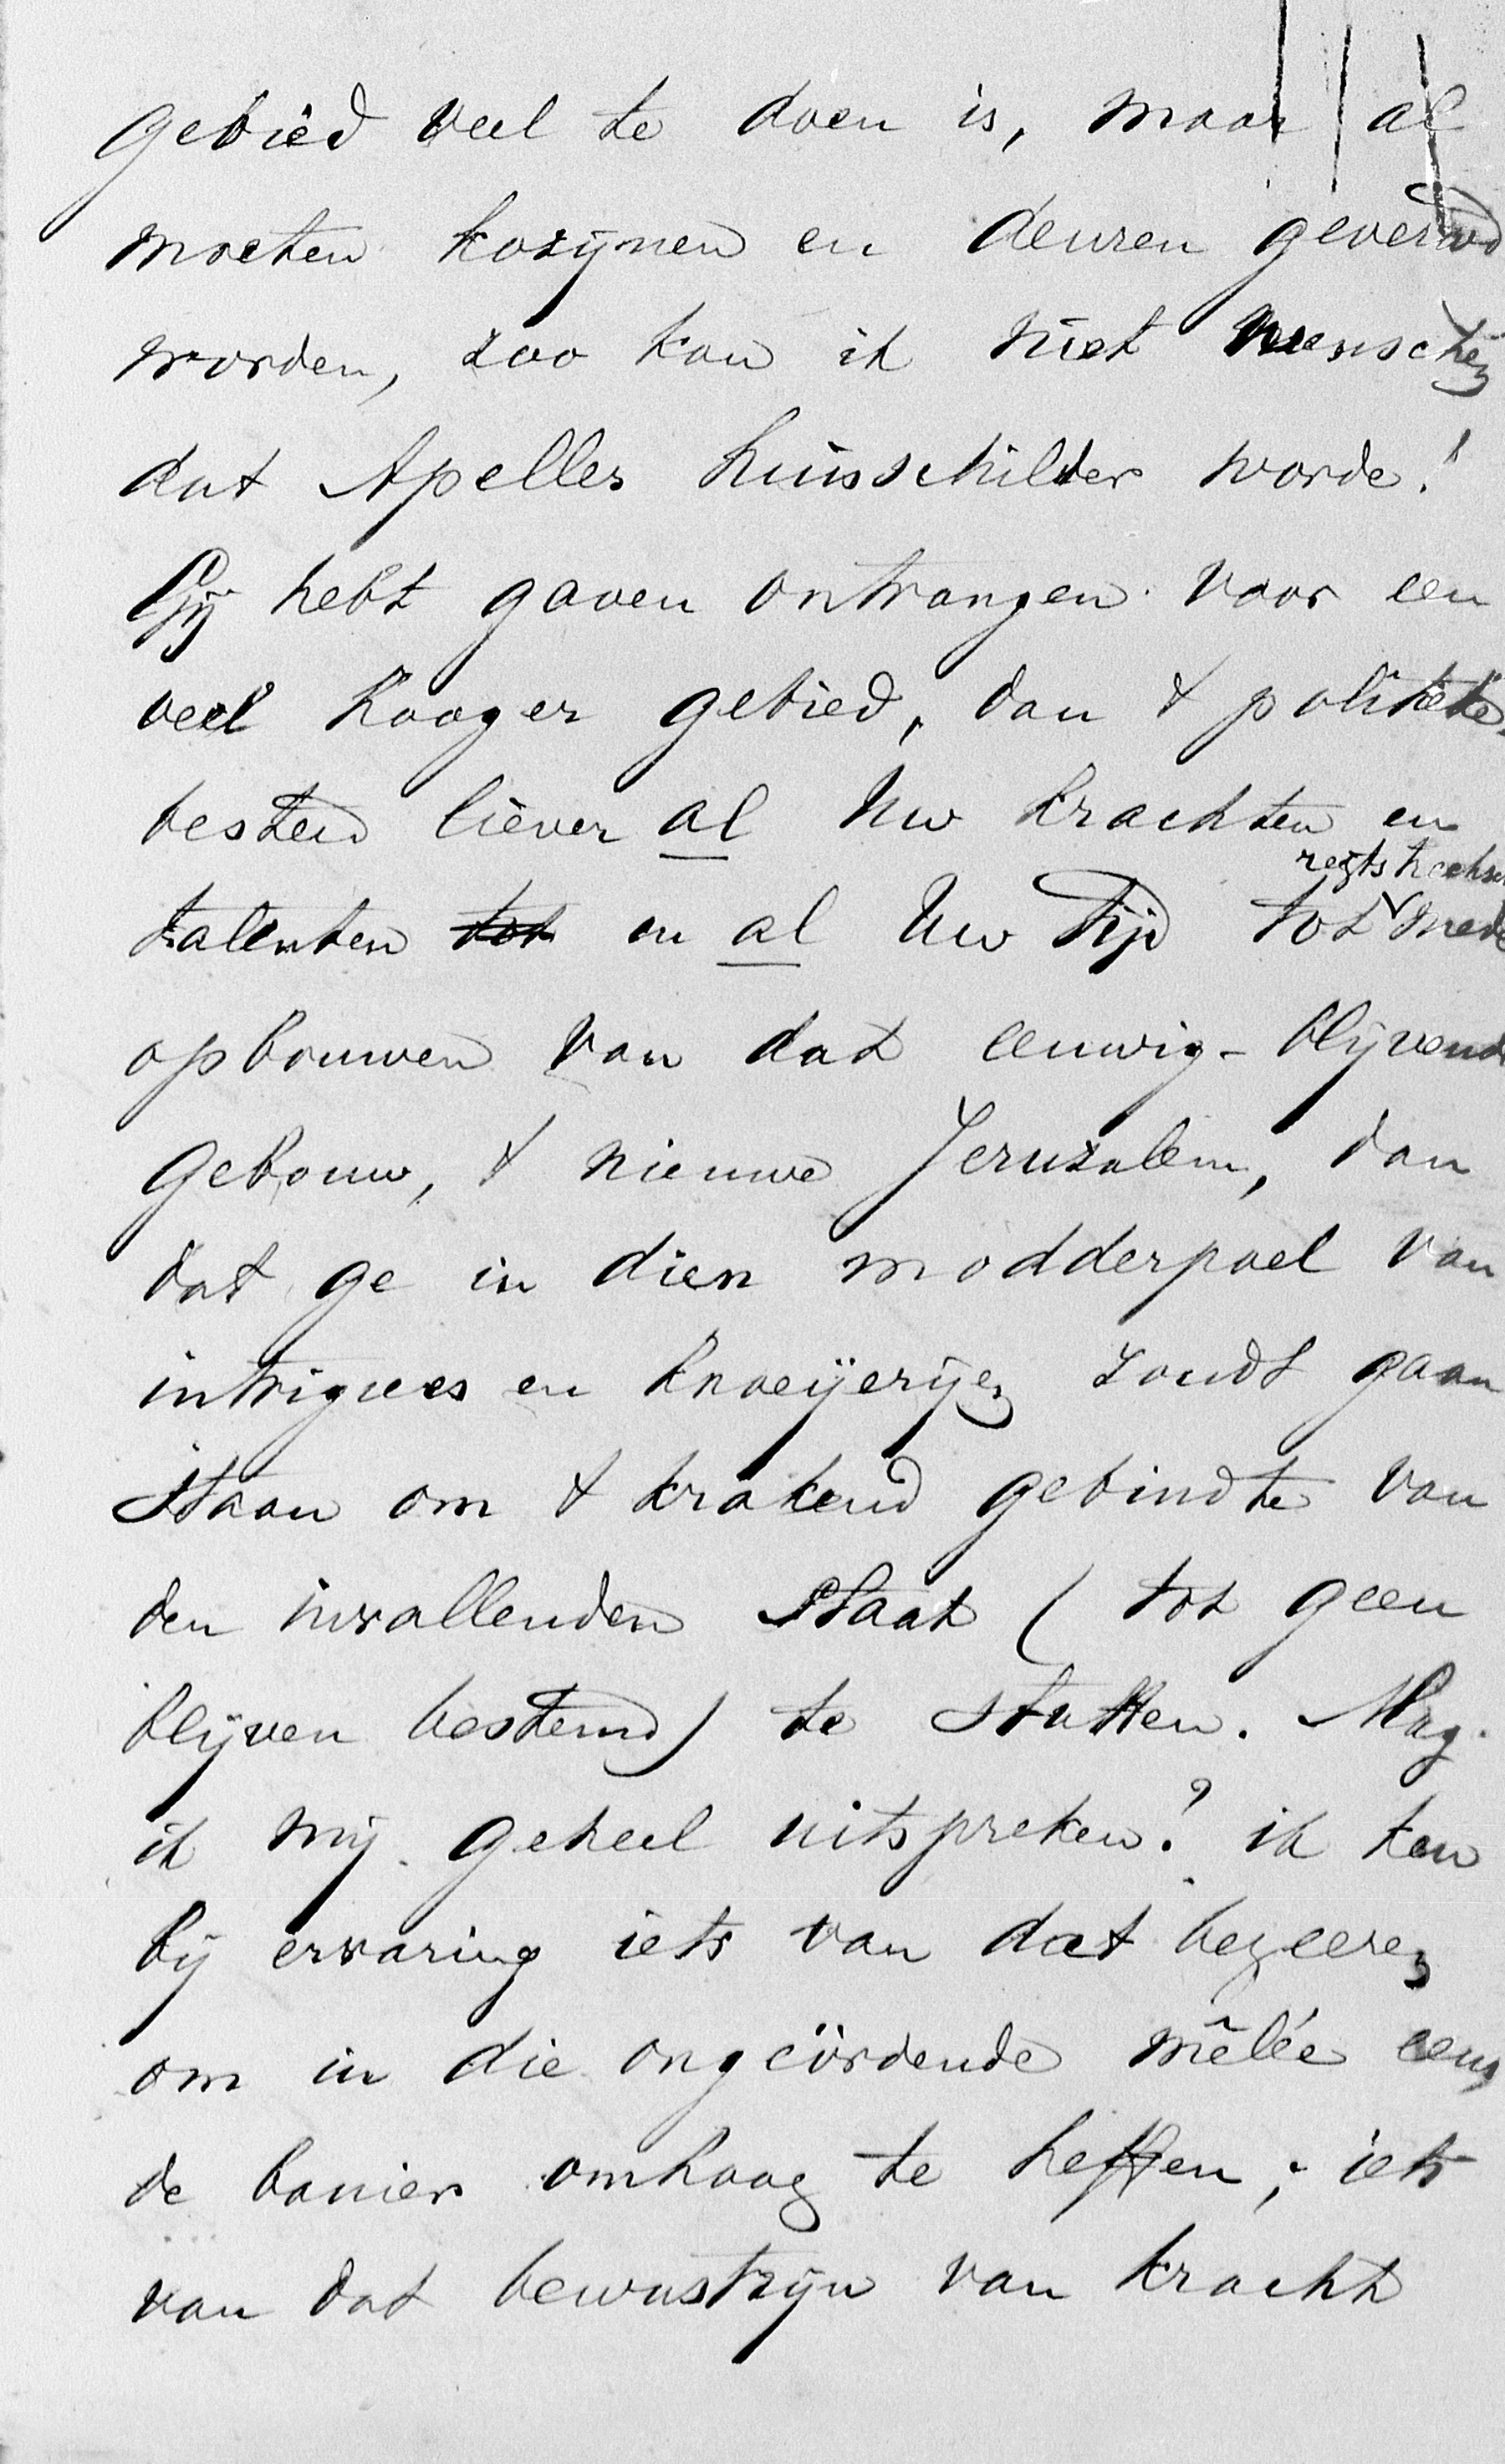 gebied veel te doen is, maar al
moeten kozijnen en deuren geverwd
worden, zoo kan ik niet wenschen
dat Apelles huisschilder worde!
Gij hebt gaven ontvangen voor een
veel hooger gebied, dan 't politieke.
besteed liever al Uw krachten en
regtstreeksch
talenten tot en al Uw tijd tot mede
opbouwen van dat eeuwig-blijvend
gebouw, 't nieuwe Jeruzalem, dan
dat ge in dien modderpoel van
intrigues en knoeijerijen zoudt gaan
staan om 't krakend gebindte van
den invallenden Staat (tot geen
blijven bestemd) te stutten. Mag
ik mij geheel uitspreken? ik ken
bij ervaring iets van dat begeeren
om in die ongeördende mêlée eens
de banier omhoog te heffen; iets
van dat bewustzijn van kracht